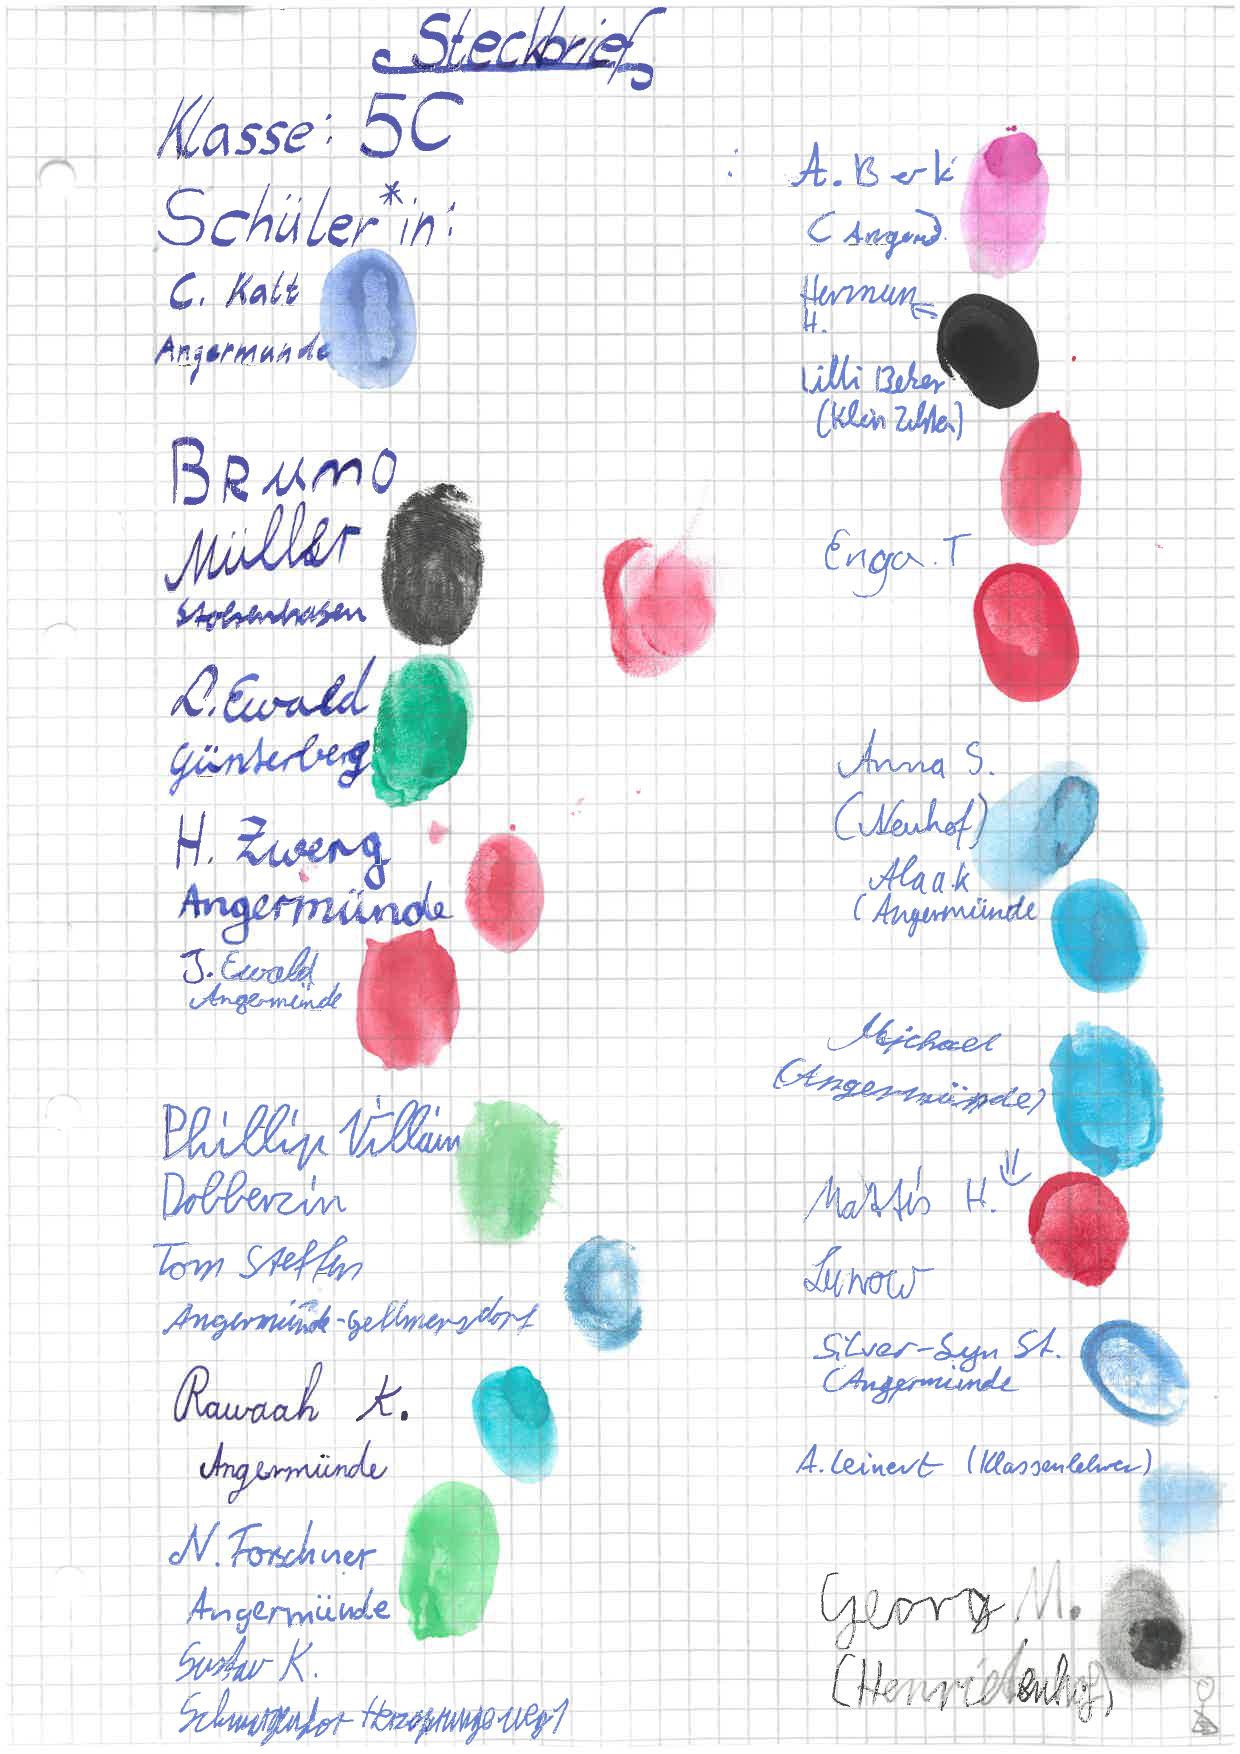 Steckbrief
Klasse: 5C
Schüler*in:
C. Kalt
Angermunde
Bruno
Müller
L. Ewald
Günterberg
H. Zwerg
Angermünde
J. Ewald
Angermünde
Phillip Villain
Dobberzin
Tom Steffen
Angermünde-Gellmersdorf
Rawaah K.
Angermünde
N. Forschner
Angermünde
Gustav K.
A. Berk
(Angerd.
Herman
H.
Lilli Beker
(Klein
Enga. T
Anna S.
(Neuhof)
Alaa k
(Angermünde
Michael
(Angermünde)
Mattis H.
Lunow
Silver-Syn St.
(Angermünde
A. Leinert (Klassenlehrer)
Georg M.
(Henriettenhof)